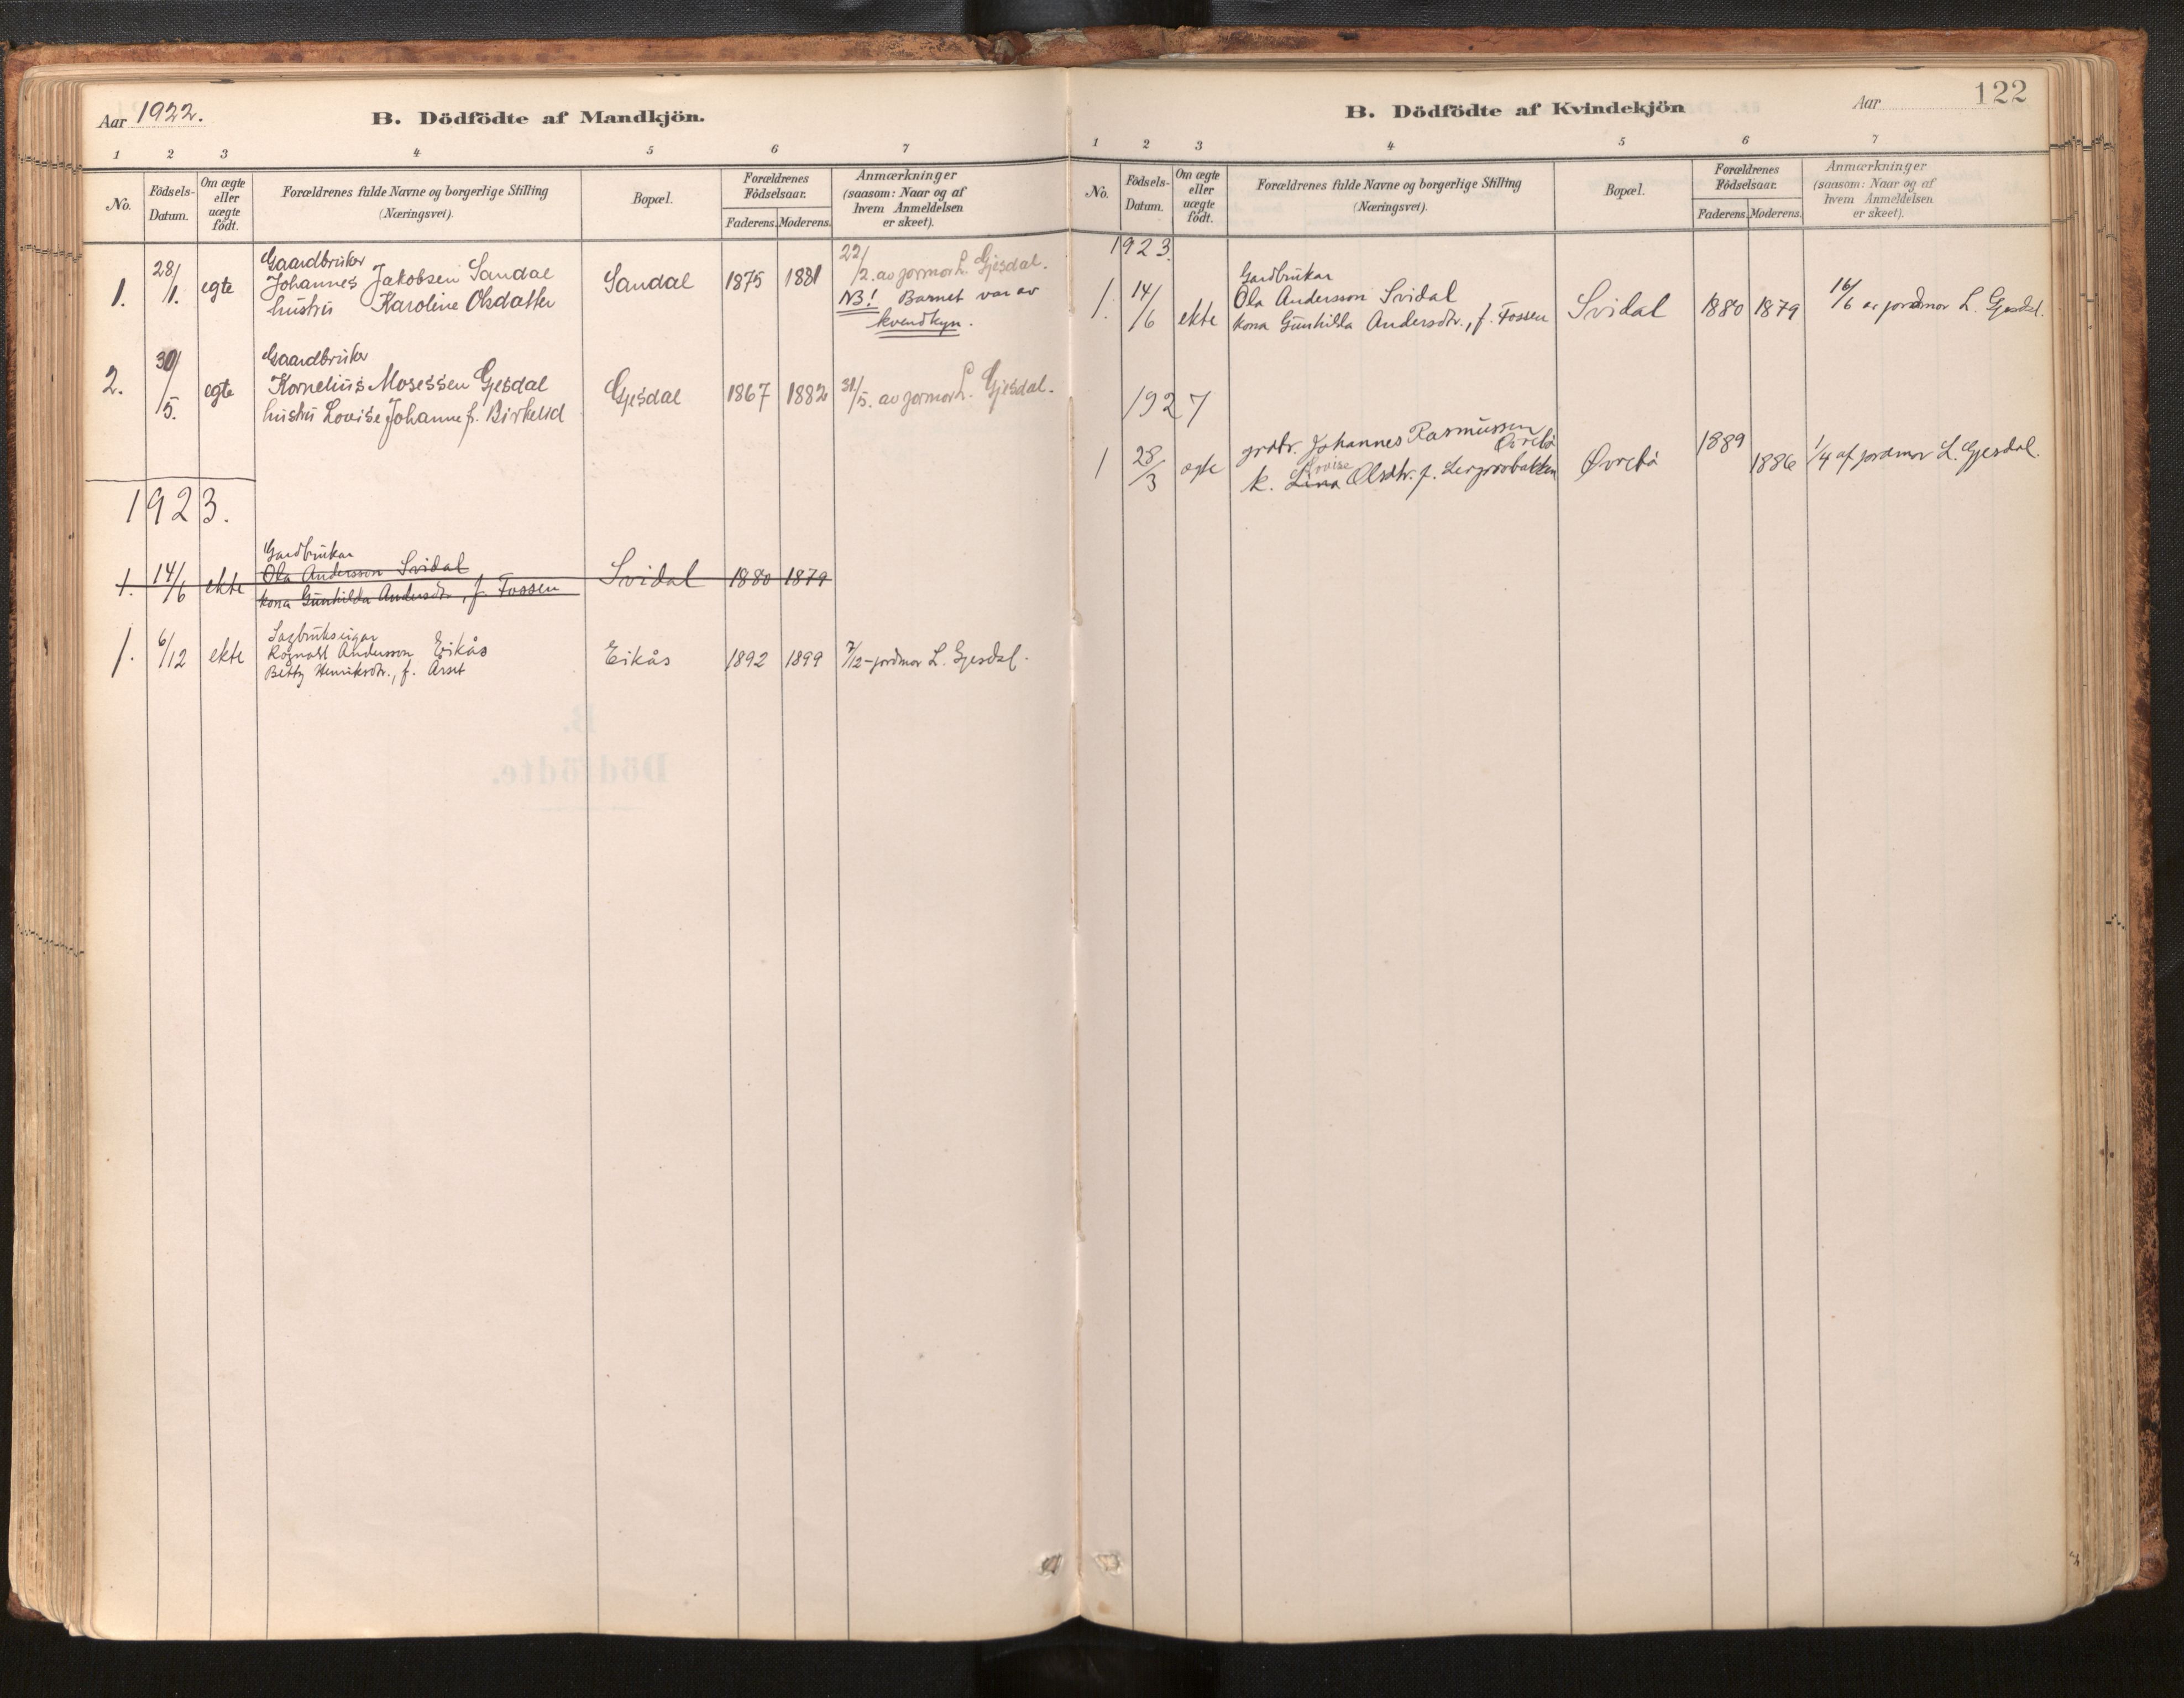 Aar 1922.
B. Dödfödte af Mandkjön.
1 2 3 4 5 6 7
No.
Födsels-Datum.
Om ægte eller uægte födt.
Forældrenes fulde Navne og borgerlige Stilling
(Næringsvei).
Bopæl.
Forældrenes Födselsaar.
Faderens. Moderens.
Anmærkninger
(saasom: Naar og af
hvem Anmeldelsen
er skeet).
Gaardbruker
1. 28/1. egte Johannes Jakobsen Sandal Sandal 1875 1881 22/2. av jormor L. Gjesdal.
hustru Karoline Olsdatter NB! Barnet var av
kvendkyn.
Gaardbruker
2. 30/5. egte Kornelius Mosessen Gjesdal Gjesdal 1867 1882 31/5. av jormor L. Gjesdal.
hustru Lovise Johanne f. Birkelid
1923.
Gardbrukar
1. 14/6 ekte Ola Andersson Svidal Svidal 1880 1879
kona Gunhilda Andersdtr., f. Fossen
Sagbrukseigar
1. 6/12 ekte Rognald Andersson Eikås Eikås 1892 1899 7/12 - jordmor L. Gjesdal.
Betty Henriksdtr., f. Årset
B. Dödfödte af Kvindekjön
Aar
122
1 2 3 4 5 6 7
No.
Födsels-Datum.
Om ægte eller uægte födt.
Forældrenes fulde Navne og borgerlige Stilling
(Næringsvei).
Bopæl.
Forældrenes Födselsaar.
Faderens. Moderens.
Anmærkninger
(saasom: Naar og af
hvem Anmeldelsen
er skeet).
1923.
Gardbrukar
1. 14/6 ekte Ola Andersson Svidal Svidal 1880 1879 16/6 av jordmor L. Gjesdal.
kona Gunhilda Andersdtr., f. Fossen
1927
1 28/3 egte grdbr. Johannes Rasmussen Øvrebø Øvrebø 1889 1886 1/4 af jordmor L. Gjesdal.
Lovise
k. Lina Olsdtr. f.
B.
Dödfödte.